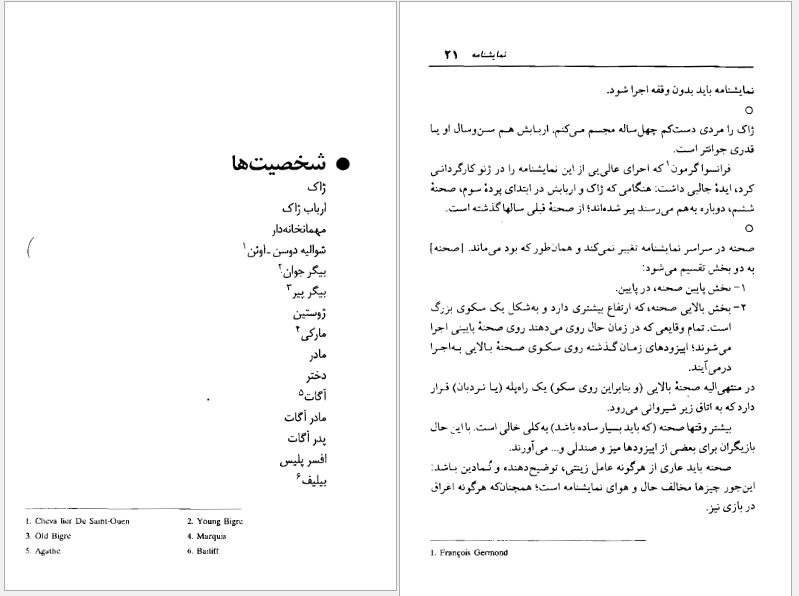 ● شخصیت‌ها
ژاک
ارباب ژاک
مهمانخانه‌دار
شوالیه دوسن ـ اوئن۱
بیگر جوان۲
بیگر پیر۳
ژوستین
مارکی۴
مادر
دختر
آگات۵
مادر آگات
پدر آگات
افسر پلیس
بیلیف۶
1. Cheva lier De Saint-Ouen 2. Young Bigre
3. Old Bigre 4. Marquis
5. Agathe 6. Bailiff
نمایشنامه ۲۱
نمایشنامه باید بدون وقفه اجرا شود.
○
ژاک را مردی دست‌کم چهل‌ساله مجسم می‌کنم. اربابش هم سن‌وسال او یا
قدری جوانتر است.
فرانسوا گرمون۱ که اجرای عالی‌یی از این نمایشنامه را در ژنو کارگردانی
کرد، ایدهٔ جالبی داشت: هنگامی که ژاک و اربابش در ابتدای پردهٔ سوم، صحنهٔ
ششم، دوباره به‌هم می‌رسند پیر شده‌اند؛ از صحنهٔ قبلی سالها گذشته است.
○
صحنه در سراسر نمایشنامه تغییر نمی‌کند و همان‌طور که بود می‌ماند. [صحنه]
به دو بخش تقسیم می‌شود:
۱– بخش پایین صحنه، در پایین.
۲– بخش بالایی صحنه، که ارتفاع بیشتری دارد و به‌شکل یک سکوی بزرگ
است. تمام وقایعی که در زمان حال روی می‌دهند روی صحنهٔ پایینی اجرا
می‌شوند؛ اپیزودهای زمان گذشته روی سکوی صحنهٔ بالایی به‌اجرا
درمی‌آیند.
در منتهی‌الیه صحنهٔ بالایی (و بنابراین روی سکو) یک راه‌پله (یا نردبان) قرار
دارد که به اتاق زیر شیروانی می‌رود.
بیشتر وقتها صحنه (که باید بسیار ساده باشد) به‌کلی خالی است. با این حال
بازیگران برای بعضی از اپیزودها میز و صندلی و... می‌آورند.
صحنه باید عاری از هرگونه عامل زینتی، توضیح‌دهنده و نُمادین باشد:
این‌جور چیزها مخالف حال و هوای نمایشنامه است؛ همچنان‌که هرگونه اغراق
در بازی نیز.
1. François Germond